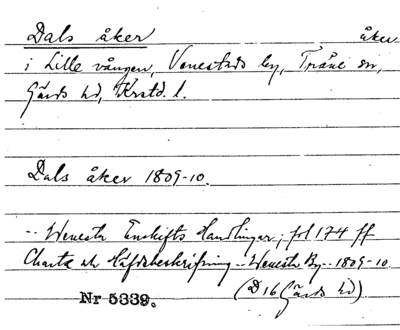 Dals åker åker
i Lille vången, Venestads by, Träne sn,
Gärds hd, Kristd. l.
Dals åker 1809-10.
-- Wenestr Enskifts Handlingar, fol 174 ff
Charta och Häfdebeskrifning -- Wenestr By -- 1809-10.
(D16 Gärds hd)
Nr 5339.